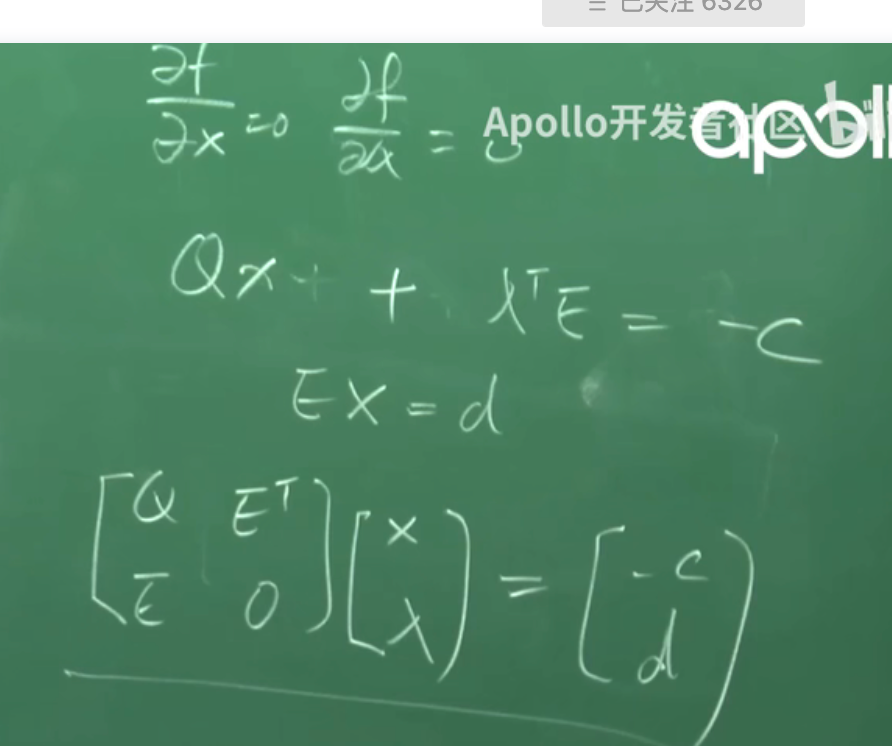 已关注 6326
∂f/∂x =0 ∂f/∂λ = 0
Apollo开发者社区
apoll
Qx + λᵀE = -c
Ex = d
[Q Eᵀ] [x] = [-c]
[E 0] [λ] [d]